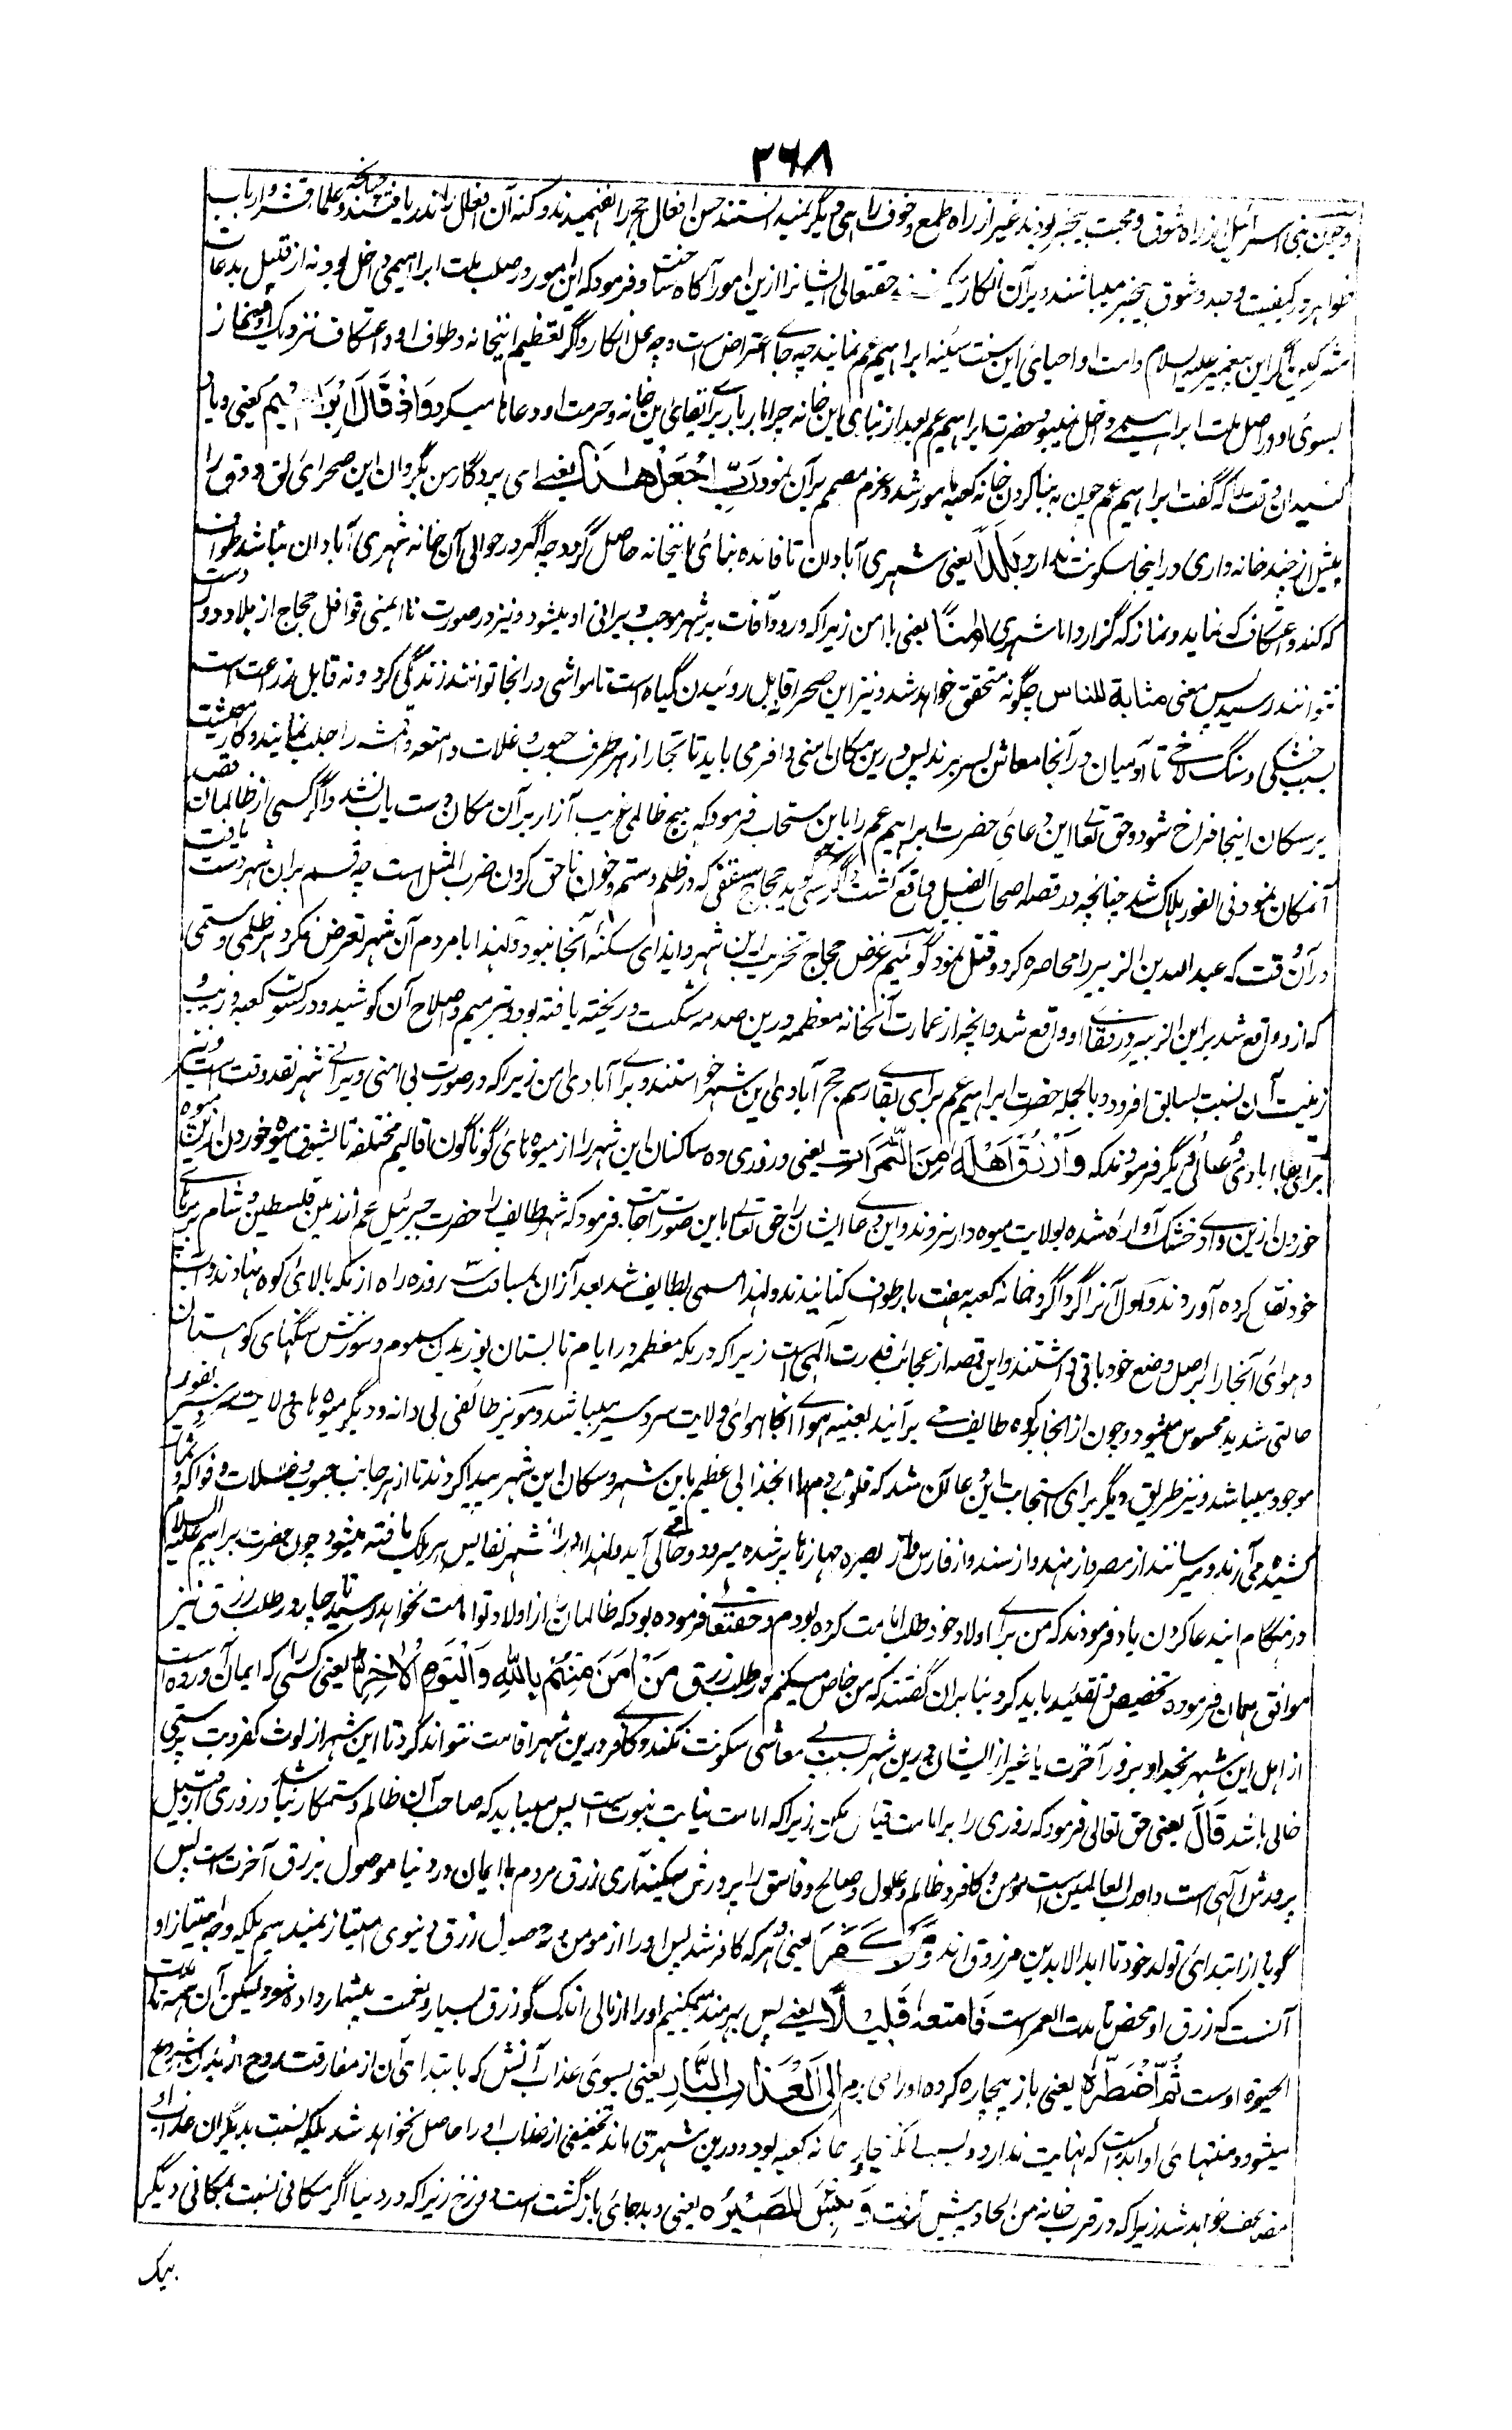 ۳۶۸
و چون بنی اسرائیل از راه شوق و محبت بیخبر بودند غیر از راه طمع و خوف راهی دیگر نمیدانستند حسن افعال حج را نفهمیدند و کنه آن افعال را ندریافتند چنانچه علما قشر و ارباب
ظواهر در کیفیت وجد و شوق بیخبر میباشند و بر آن انکار میکنند حقتعالی ایشانرا ازین امور آگاه ساخت و فرمود که این امور در صلب ملت ابراهیمی داخل بود نه از قبیل بدعات
مشرکین اگر این پیغمبر علیه السلام و امت او احیای این سنت سنیه ابراهیم عم نمایند چه جای اعتراض است و چه محل انکار و اگر تعظیم اینخانه و طواف او و اعتکاف نزدیک او و نماز
بسوی او در اصل ملت ابراهیمی داخل نمیبود حضرت ابراهیم عم بعد از بنای این خانه چرا بار بار برای بقای این خانه و حرمت او دعاها میکرد وَاِذْ قَالَ اِبْرَاهِیْمُ یعنی و یاد
کنید آن وقت را که گفت ابراهیم عم چون به بنا کردن خانه کعبه مامور شد و عزم مصمم بر آن نمود رَبِّ اجْعَلْ هٰذَا یعنی ای پروردگار من بگردان این صحرای لق و دق را
بیش از چند خانه داری در اینجا سکونت ندارد بَلَدًا یعنی شهری آبادان تا فائده بنای اینخانه حاصل گردد چه اگر در حوالی آن خانه شهری آبادان نباشد طواف
که کند و اعتکاف که نماید و نماز که گزارد اما شهری اٰمِنًا یعنی با امن زیرا که ورود آفات بر شهر موجب ویرانی او میشود و نیز در صورت ناایمنی قوافل حجاج از بلاد دور دست
نتوانند رسید پس معنی مثابة للناس چگونه متحقق خواهد شد و نیز این صحرا قابل روئیدن گیاه است تا مواشی در انجا توانند زندگی کرد و نه قابل زراعت است
بسبب خشکی و سنگ لاخی تا آدمیان در آنجا معاش بسر برند پس درین مکان امنی وافر می باید تا تجار از هر طرف حبوب و غلات و امتعه و اقمشه را جلب نمایند و کار معیشت
بر سکان اینجا فراخ شود و حق تعالی این دعای حضرت ابراهیم عم را باین مستجاب فرمود که هیچ ظالمی غریب آزار بر آن مکان دست یاب نشد و اگر کسی از ظالمان قصد
آنمکان نمود فی الفور هلاک شد چنانچه در قصه اصحاب الفیل واقع گشت و اگر کسی گوید حجاج ثقفی که در ظلم و ستم و خون ناحق کردن ضرب المثل است چه قسم بر ان شهر دست یافت
در آن وقت که عبد الله بن الزبیر را محاصره کرد و قتل نمود گوئیم غرض حجاج تخریب این شهر و ایذای سکنه آنجا نبود و لهذا با مردم آن شهر تعرض نکرد هر ظلمی و ستمی
که ازو واقع شد بر ابن الزبیر و رفقای او واقع شد و آنچه از عمارت آنخانه معظمه درین صدمه شکست و ریخته یافته بود در ترمیم و اصلاح آن کوشید و در کسوت کعبه و زیب و
زینت آن نسبت بسابق افزود و بالجمله حضرت ابراهیم عم برای بقای رسم حج آبادی این شهر خواستند و برای آبادی امن زیرا که در صورت بی امنی ویرانی شهر نقد وقت است و نیز
برای بقای آبادی دعای دیگر فرمودند که وَارْزُقْ اَهْلَهٗ مِنَ الثَّمَرَاتِ یعنی و روزی ده ساکنان این شهر را از میوه های گوناگون اقالیم مختلفه تا بشوق میوه خوردن
خوردن ازین وادی خشک آواره شده بولایت میوه دار نروند و این دعای ایشان را حق تعالی باین صورت اجابت فرمود که شهر طایف را حضرت جبرئیل عم از زمین فلسطین و شام بر پرهای
خود نقل کرده آوردند و اول آنرا گرداگرد خانه کعبه هفت بار طواف کنانیدند و لهذا مسمی بطایف شد بعد از آن بمسافت روزه راه از مکه بالای کوه نهادند و آب
و هوای آنجا را بر اصل وضع خود باقی داشتند و این قصه از عجائب قدرت آلهی است زیرا که در مکه معظمه در ایام تابستان بوزیدن سموم و سوزش سنگهای کوهستان
حالتی شدید محسوس میشود و چون از انجا بکوه طایف می برآیند بعینه هوای آنجا هوای ولایت سردسیر میباشد و مویز طائفی بی دانه و دیگر میوه های ولایت سردسیر بوفور
موجود میباشد و نیز طریق دیگر برای استجابت این دعا آن شد که قلوب مردم را انجذابی عظیم باین شهر و سکان این شهر پیدا کردند تا از هر جانب حبوب و غلات و فواکه و ثمار
کشیده می آرند و میرسانند از مصر و از هند و از سند و از فارس و از بصره جهازها پر شده میرود و خالی می آید و لهذا دران شهر نفایس هر ملک یافته میشود چون حضرت ابراهیم علیه السلام
در هنگام این دعا کردن یاد فرمودند که من برای اولاد خود طلب امامت کرده بودم و حقتعالی فرموده بود که ظالمان را از اولاد تو امامت نخواهد رسید ناچار در طلب رزق نیز
موافق همان فرموده تخصیص و تقئید باید کرد بنا بران گفتند که من خاص میکنم در طلب رزق مَنْ اٰمَنَ مِنْهُمْ بِاللّٰهِ وَالْیَوْمِ الْاٰخِرِ یعنی کسی را که ایمان آورده است
از اهل این شهر بخدا و بروز آخرت تا غیر از ایشان درین شهر بسبب بی معاشی سکونت نکنند و کافر درین شهر اقامت نتواند کرد تا این شهر از لوث کفر و بت پرستی
خالی باشد قَالَ یعنی حق تعالی فرمود که روزی را بر امامت قیاس مکن زیرا که امامت نیابت نبوت است پس میباید که صاحب آن ظالم و ستمکار نباشد و روزی از قبیل
پرورش آلهی است و او رب العالمین است مومن و کافر و ظالم و عدول و صالح و فاسق را پرورش میکند آری رزق مردم با ایمان در دنیا موصول برزق آخرت است پس
گویا از ابتدای تولد خود تا ابد الابدین مرزوق اند وَمَنْ کَفَرَ یعنی و هر که کافر شد پس او را از مومن در حصول رزق دنیوی امتیاز نمیدهیم بلکه وجه امتیاز او
آنست که رزق او محض تا مدت العمر است فَاُمَتِّعُهٗ قَلِیْلًا یعنی پس بهره مند میکنیم او را زمانی اندک گو رزق بسیار و نعمت بیشمار داده شود لیکن آن همه تا مدت
الحیوة اوست ثُمَّ اَضْطَرُّهٗ یعنی باز بیچاره کرده او را می برم اِلٰی عَذَابِ النَّارِ یعنی بسوی عذاب آتش که ابتدای آن از مفارقت روح از بدن شروع
میشود و منتهای او ابد است که نهایت ندارد و بسبب آنکه جار خانه کعبه بود و درین شهر می ماند تخفیفی از عذاب او را حاصل نخواهد شد بلکه نسبت بدیگران عذاب او
مضاعف خواهد شد زیرا که در قرب خانه من الحاد پیش گرفت وَ بِئْسَ الْمَصِیْرُ ه یعنی و بد جای بازگشت است دوزخ زیرا که در دنیا اگر مکانی نسبت بمکانی دیگر
بیک